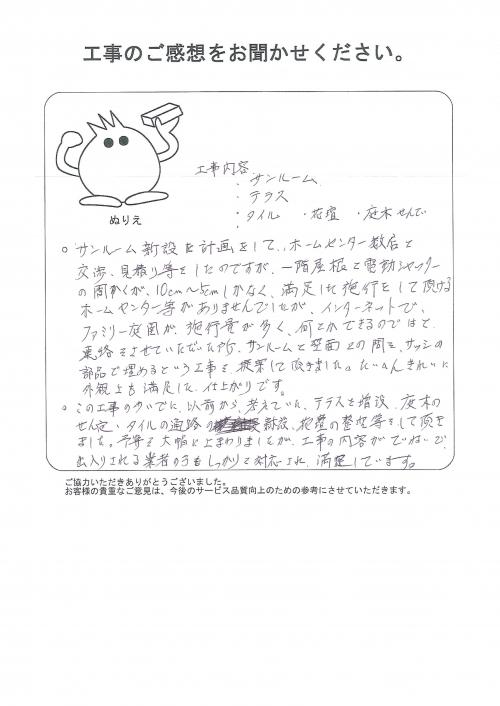 工事のご感想をお聞かせください。
ぬりえ
工事内容
・サンルーム
・テラス
・タイル ・花壇 ・庭木せんてい
○ サンルーム新設を計画をして、ホームセンター数店と
交渉、見積り等をしたのですが、一階屋根と電動シャッター
の間かくが、10cm~5cmしかなく、満足した施行をして頂ける
ホームセンター等がありませんでしたが、インターネットで、
ファミリー庭園が、施行量が多く、何とかできるのではと、
連絡をさせていただいた所、サンルームと壁面との間を、サッシの
部品で埋めるという工事を提案して頂きました。たいへんきれいに
外観上も満足した仕上がりです。
○ この工事のついでに、以前から考えていた、テラスを増設、庭木の
せん定・タイルの通路の新設、花壇の整地等をして頂き
ました。予算を大幅に上まわりましたが、工事の内容がていねいで、
出入りされる業者の方もしっかりと対応され、満足しています。
ご協力いただきありがとうございました。
お客様の貴重なご意見は、今後のサービス品質向上のための参考にさせていただきます。